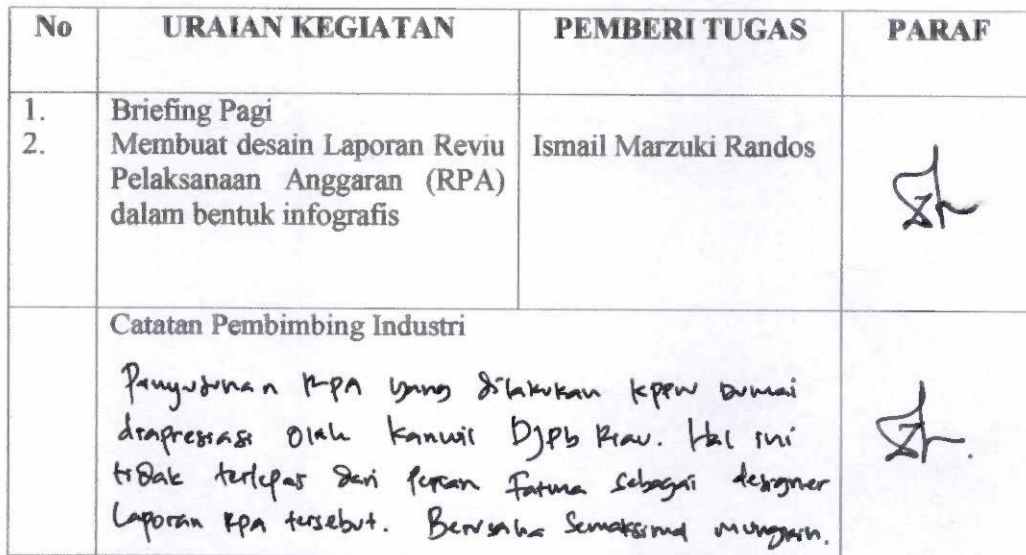 No URAIAN KEGIATAN PEMBERI TUGAS PARAF
1. Briefing Pagi
2. Membuat desain Laporan Reviu Ismail Marzuki Randos
Pelaksanaan Anggaran (RPA)
dalam bentuk infografis
Catatan Pembimbing Industri
Penyusunan RPA yang dilakukan KPPN Dumai
diapresiasi oleh Kanwil DJPb Riau. Hal ini
tidak terlepas dari peran Fatma sebagai designer
Laporan RPA tersebut. Berusaha semaksimal mungkin.